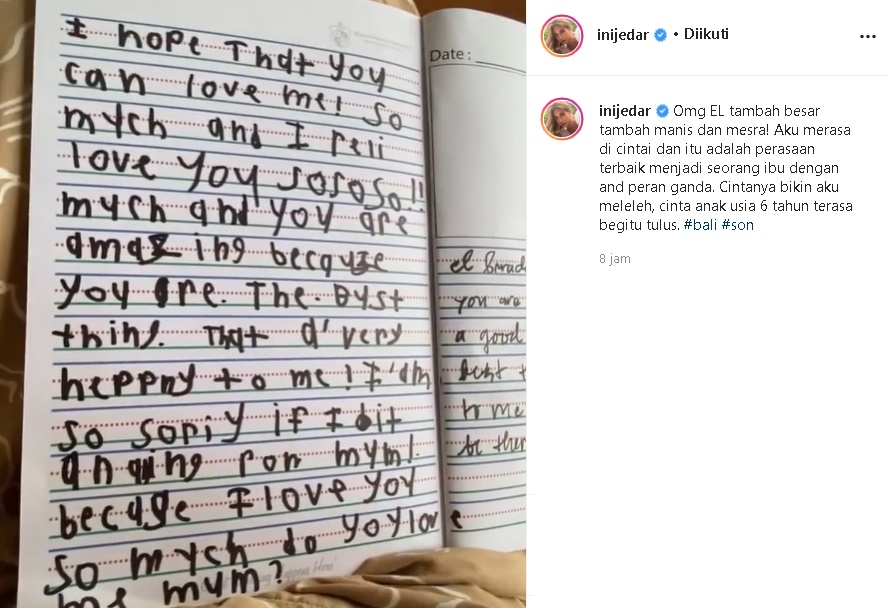 I hope That you
can love me! so
mych and I reli
love you sososo!!
mych and you are
amazing becquse
you are. The. Byst
thing. That d'very
heppny to me! I'dm
so soriy if I dit
anqing ron mym!
becuge I love yoy
so mych do yoy love
me mym?
Date:
el
you are
a good
best t
to me
be ther
inijedar • Diikuti
inijedar Omg EL tambah besar
tambah manis dan mesra! Aku merasa
di cintai dan itu adalah perasaan
terbaik menjadi seorang ibu dengan
and peran ganda. Cintanya bikin aku
meleleh, cinta anak usia 6 tahun terasa
begitu tulus. #bali #son
8 jam